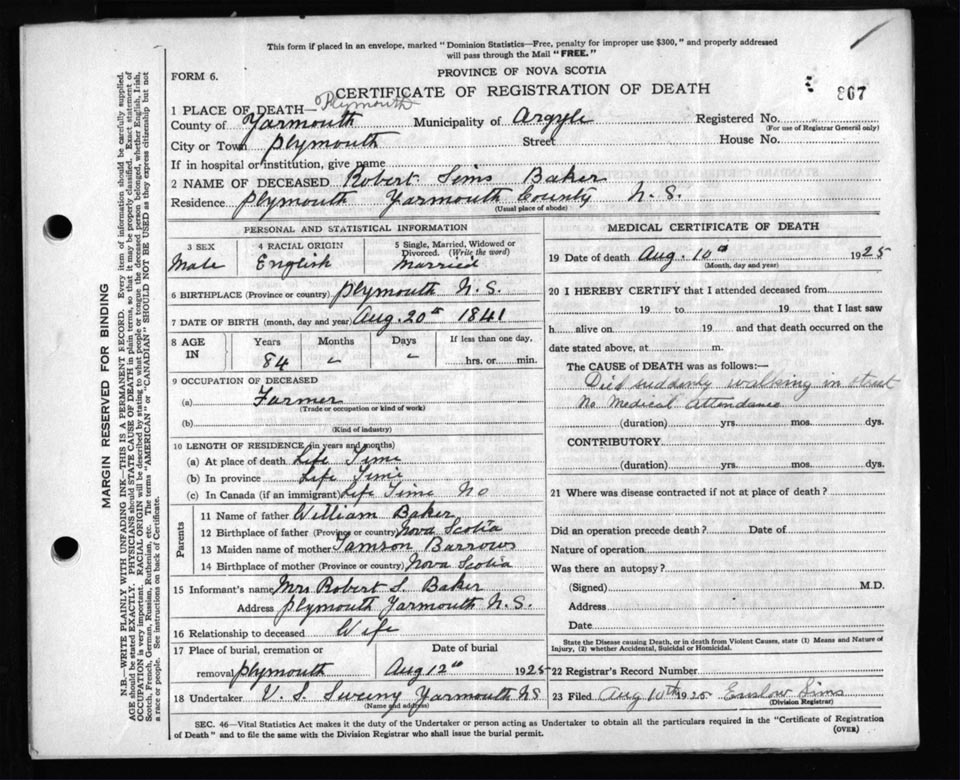 This form if placed in an envelope, marked "Dominion Statistics—Free, penalty for improper use $300," and properly addressed
will pass through the Mail "FREE."
FORM 6.
PROVINCE OF NOVA SCOTIA
CERTIFICATE OF REGISTRATION OF DEATH
867
1 PLACE OF DEATH— Plymouth
County of Yarmouth Municipality of Argyle Registered No.
(For use of Registrar General only)
City or Town Plymouth Street House No.
If in hospital or institution, give name
2 NAME OF DECEASED Robert Sims Baker
Residence Plymouth Yarmouth County N. S.
(Usual place of abode)
PERSONAL AND STATISTICAL INFORMATION
3 SEX 4 RACIAL ORIGIN 5 Single, Married, Widowed or
Divorced. (Write the word)
Male English Married
6 BIRTHPLACE (Province or country) Plymouth N. S.
7 DATE OF BIRTH (month, day and year) Aug. 20th 1841
8 AGE IN Years Months Days If less than one day,
84 " " hrs. or min.
9 OCCUPATION OF DECEASED
(a) Farmer
(Trade or occupation or kind of work)
(b)
(Kind of industry)
10 LENGTH OF RESIDENCE (in years and months)
(a) At place of death Life Time
(b) In province Life Time
(c) In Canada (if an immigrant) Life Time No
Parents
11 Name of father William Baker
12 Birthplace of father (Province or country) Nova Scotia
13 Maiden name of mother Tamson Barrows
14 Birthplace of mother (Province or country) Nova Scotia
15 Informant's name Mrs Robert S. Baker
Address Plymouth Yarmouth N. S.
16 Relationship to deceased Wife
17 Place of burial, cremation or Date of burial
removal Plymouth Aug 12th 1925
18 Undertaker V. S. Sweeny Yarmouth NS
(Name and address)
MEDICAL CERTIFICATE OF DEATH
19 Date of death Aug. 10th 1925
(Month, day and year)
20 I HEREBY CERTIFY that I attended deceased from
19 to 19 that I last saw
h alive on 19 and that death occurred on the
date stated above, at m.
The CAUSE of DEATH was as follows:—
Died suddenly walking in street
No Medical Attendance
(duration) yrs. mos. dys.
CONTRIBUTORY
(duration) yrs. mos. dys.
21 Where was disease contracted if not at place of death?
Did an operation precede death? Date of
Nature of operation
Was there an autopsy?
(Signed) M.D.
Address
Date
State the Disease causing Death, or in death from Violent Causes, state (1) Means and Nature of
Injury, (2) whether Accidental, Suicidal or Homicidal.
22 Registrar's Record Number
23 Filed Aug 10th 1925 Enslow Sims
(Division Registrar)
SEC. 46—Vital Statistics Act makes it the duty of the Undertaker or person acting as Undertaker to obtain all the particulars required in the "Certificate of Registration
of Death" and to file the same with the Division Registrar who shall issue the burial permit.
(OVER)
MARGIN RESERVED FOR BINDING
N.B.—WRITE PLAINLY WITH UNFADING INK—THIS IS A PERMANENT RECORD. Every item of information should be carefully supplied.
AGE should be stated EXACTLY. PHYSICIANS should STATE CAUSE OF DEATH in plain terms, so that it may be properly classified. Exact statement of
OCCUPATION is very important. RACIAL ORIGIN will be described by stating to what people or tongue the deceased person belonged, whether English, Irish,
Scotch, French, German, Russian, Ruthenian, etc. The terms "AMERICAN" or "CANADIAN" SHOULD NOT BE USED as they express citizenship but not
a race or people. See instructions on back of Certificate.